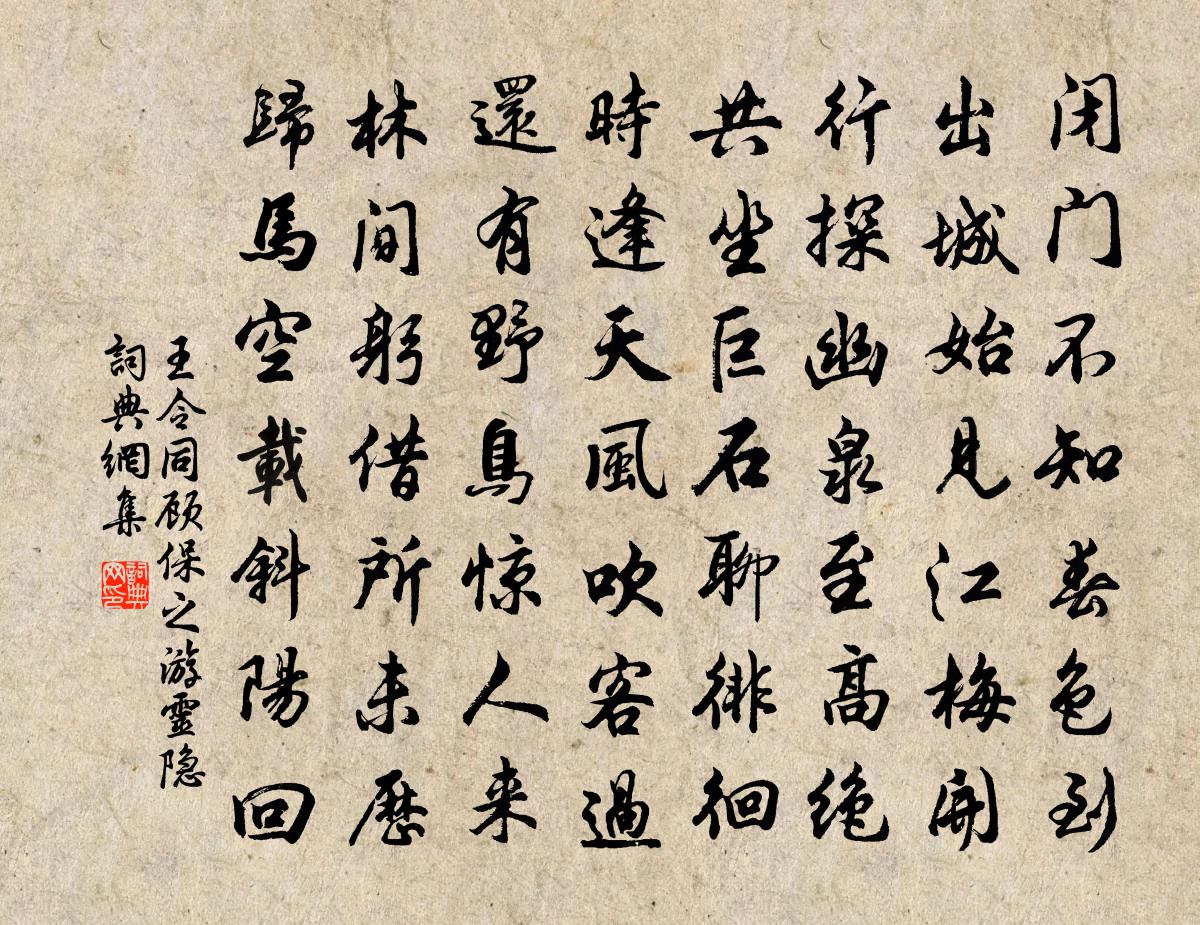 闭门不知春色到
出城始见江梅開
行探幽泉至高绝
共坐巨石聊徘徊
時逢天風吹客過
還有野鳥惊人来
林间躬借所未歷
歸馬空載斜陽回
王令同顾保之游靈隐
詞典網集
詞典网印